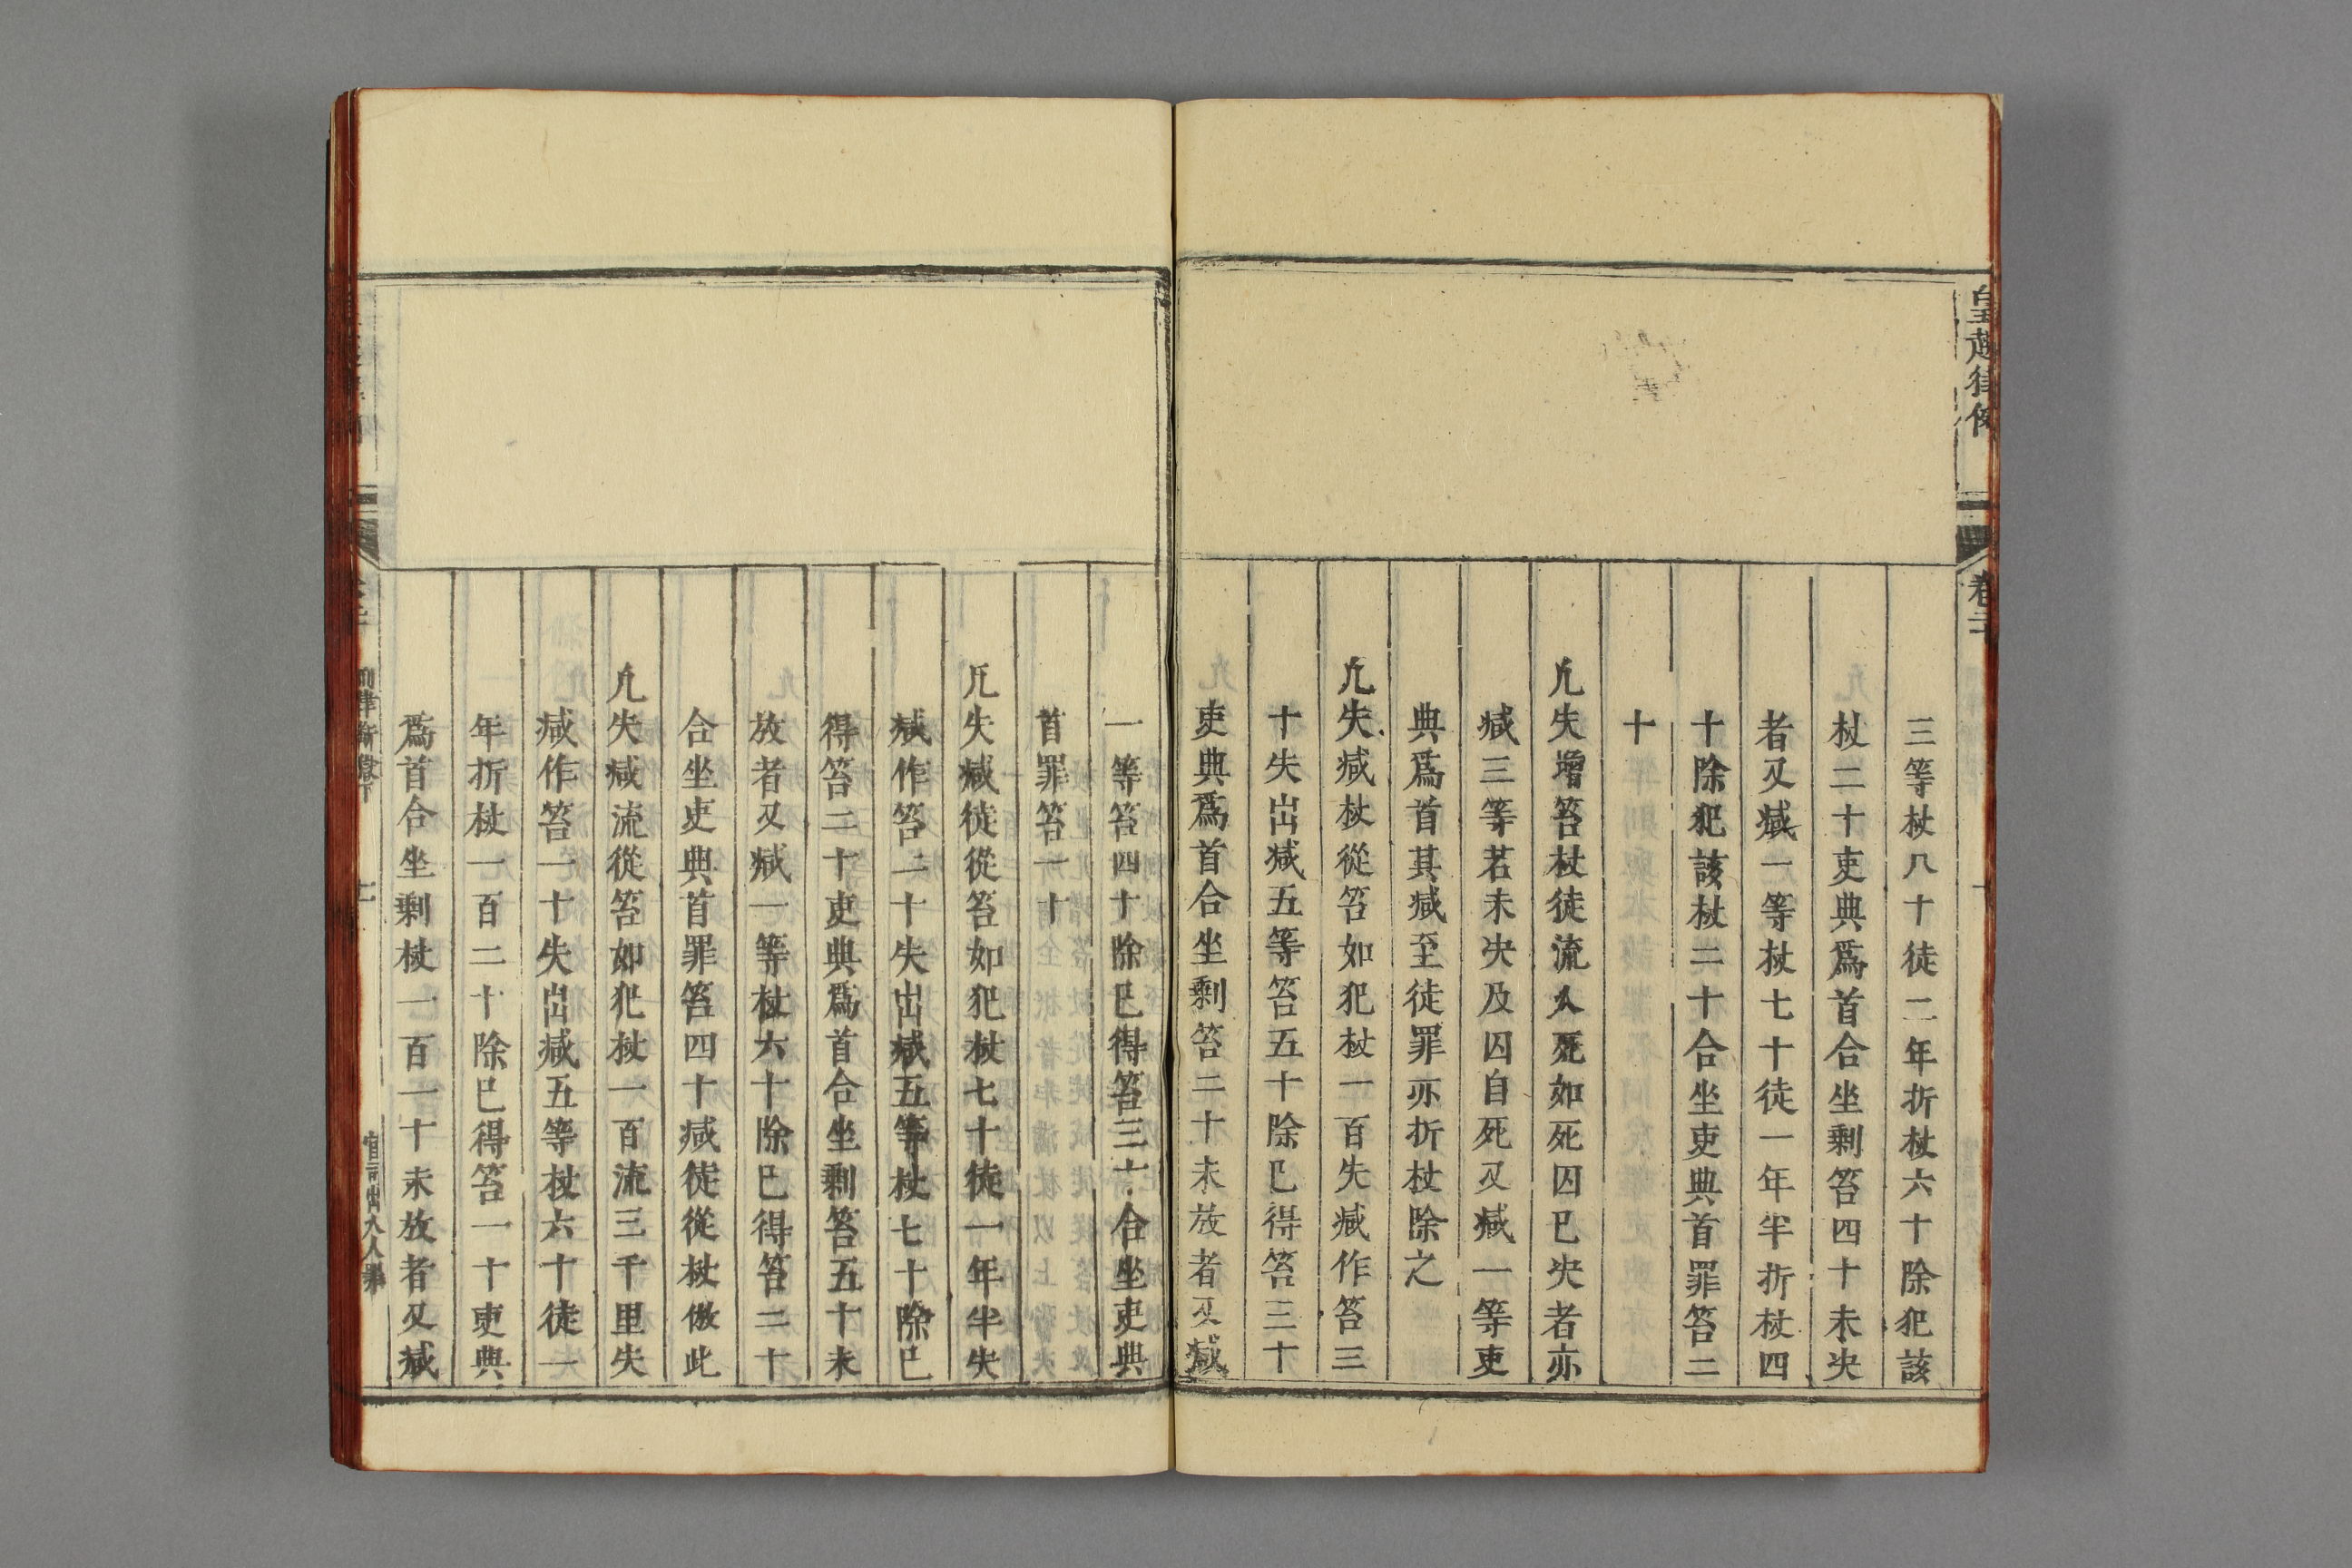 皇越律例
卷二十
三等杖八十徒二年折杖六十除犯該
杖二十吏典爲首合坐剩笞四十未决
者又减一等杖七十徒一年半折杖四
十除犯該杖二十合坐吏典首罪笞二
十
凡失增笞杖徒流入死如死囚已决者亦
减三等若未决及囚自死又减一等吏
典爲首其减至徒罪亦折杖除之
凡失减杖從笞如犯杖一百失减作笞三
十失出减五等笞五十除已得笞三十
吏典爲首合坐剩笞二十未放者又减
一等笞四十除已得笞三十合坐吏典
首罪笞一十
凡失减徒從笞如犯杖七十徒一年半失
减作笞二十失出减五等杖七十除已
得笞二十吏典爲首合坐剩笞五十未
放者又减一等杖六十除已得笞二十
合坐吏典首罪笞四十减徒從杖倣此
凡失减流從笞如犯杖一百流三千里失
减作笞一十失出减五等杖六十徒一
年折杖一百二十除已得笞一十吏典
爲首合坐剩杖一百一十未放者又减
刑律斷獄下
官司出入人罪